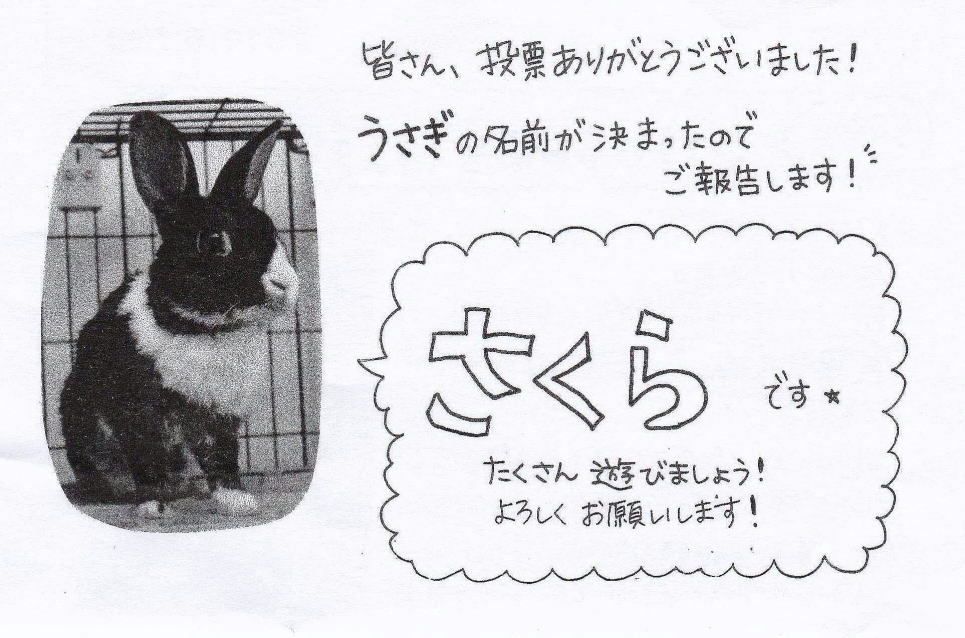 皆さん、投票ありがとうございました!
うさぎの名前が決まったので
ご報告します!
さくら です★
たくさん遊びましょう!
よろしくお願いします!